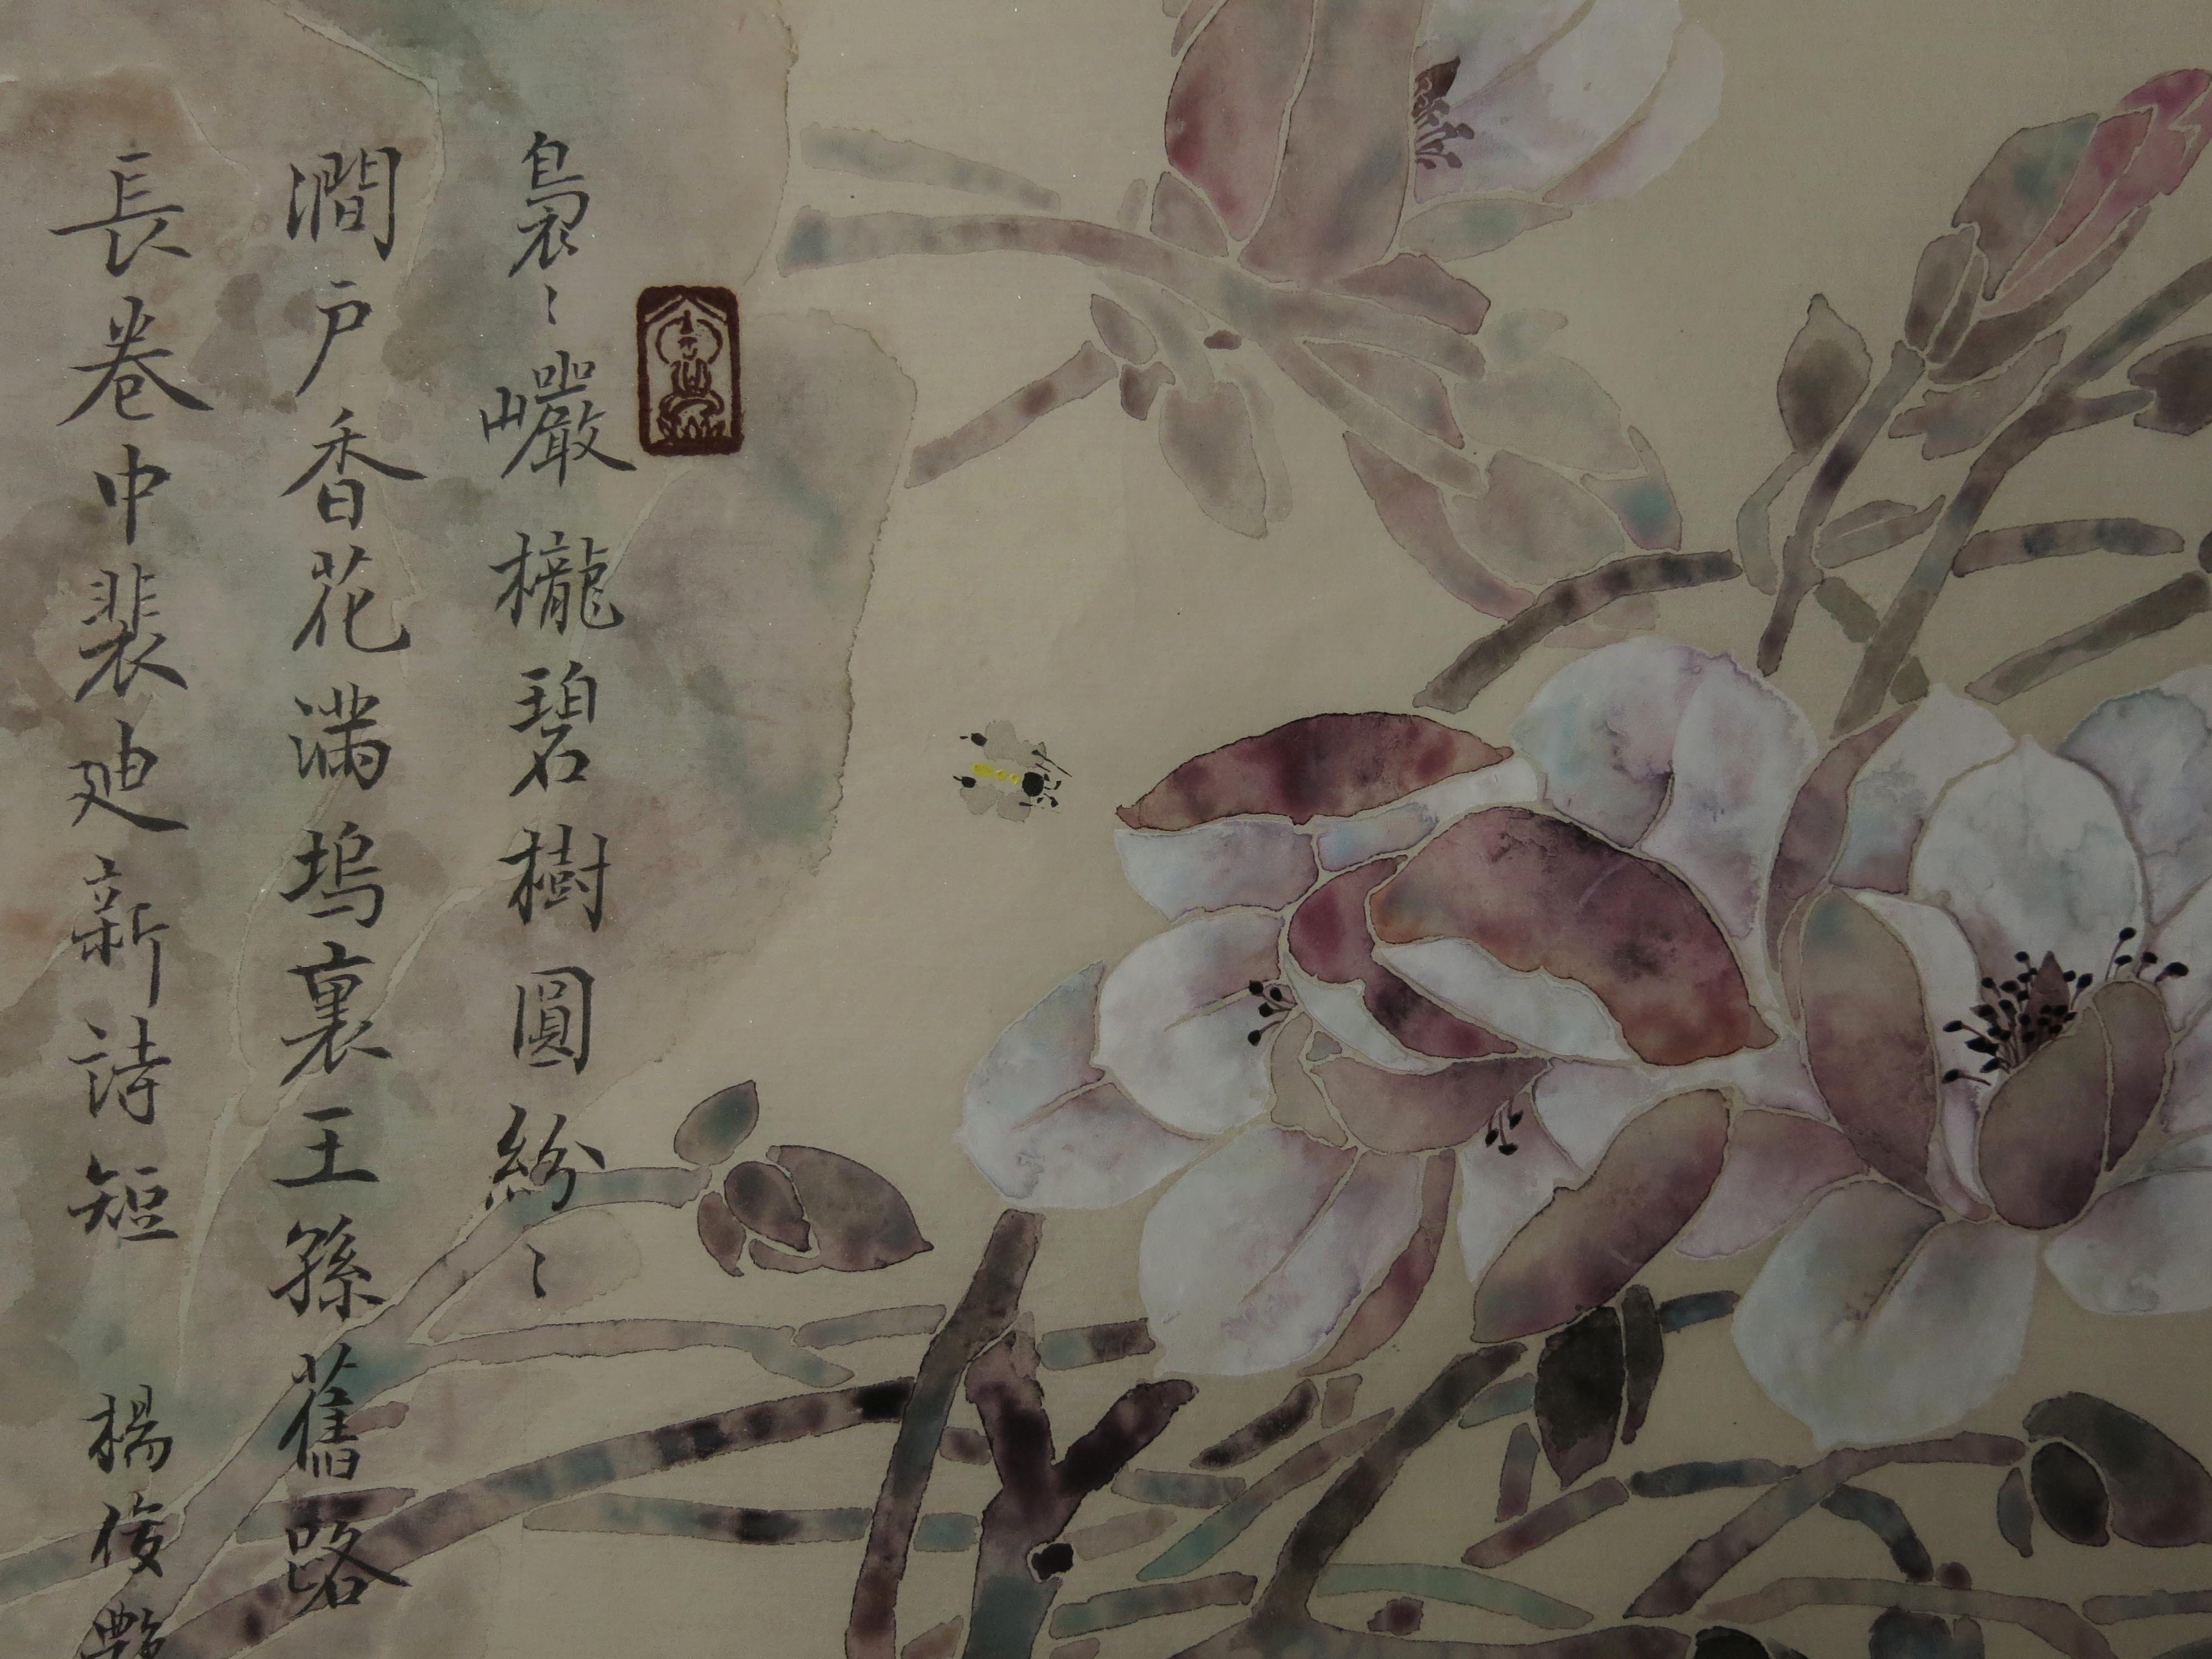 裊〻巘櫳碧樹圓紛〻
澗戶香花滿塢裏王孫舊路
長卷中裴迪新詩短
楊俊艷